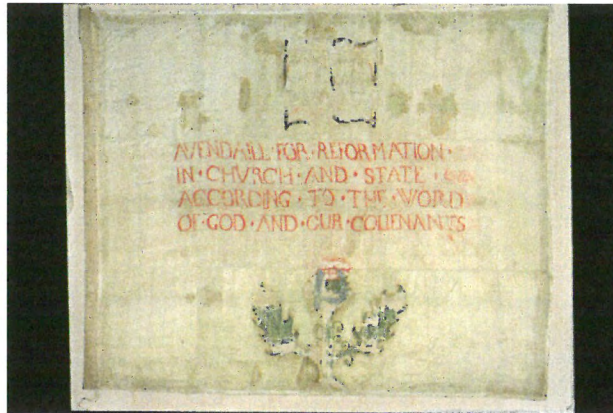 AVENDAILL·FOR·REFORMATION·
IN·CHVRCH·AND·STATE
ACCORDING·TO·THE·WORD
OF·GOD·AND·OUR·COUENANTS